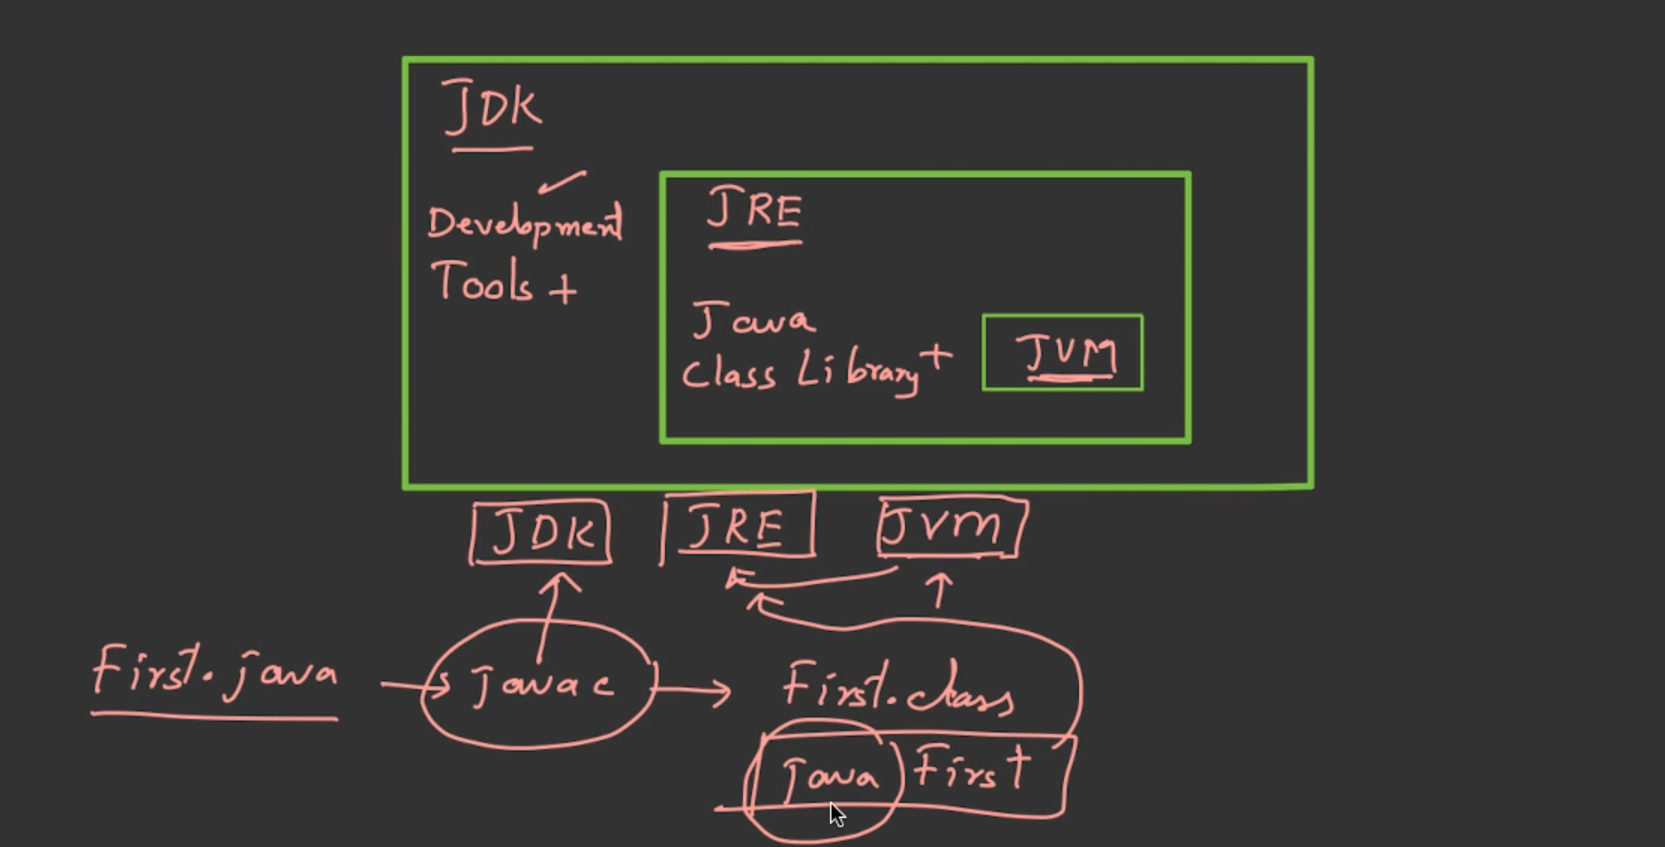 JDK
Development
Tools +
JRE
Java
Class Library +
JVM
JDK
JRE
JVM
First.java
javac
First.class
java First